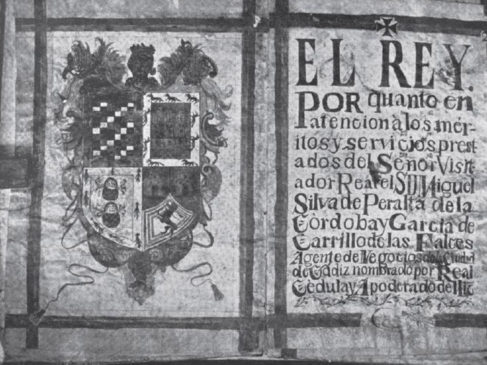 EL REY.
POR quanto en
atencion à los mér-
itos y servicios prest
ados del Señor Visit
ador Real el S. D. Miguel
Silva de Peralta de la
Còrdoba y Garcia de
Carrillo de las Falces
Agente de Negocios de la Ciudad
de Cadiz nombrado por Real
Cedula y Apoderado del